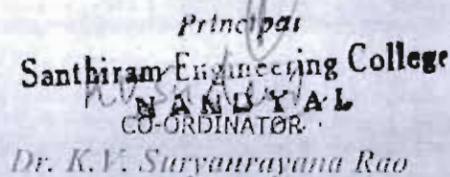 Principal
Santhiram Engineering College
NANDYAL
CO-ORDINATOR
Dr. K.V. Suryanrayana Rao